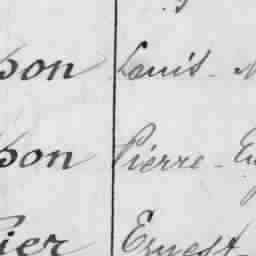 pon Louis - 
pon Pierre - Eu
ier Ernest -